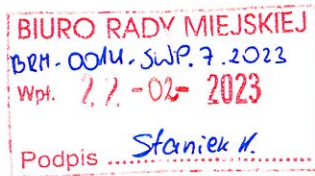 BIURO RADY MIEJSKIEJ
BRM-0014.SWP.7.2023
Wpł. 22-02-2023
Podpis Staniek K.